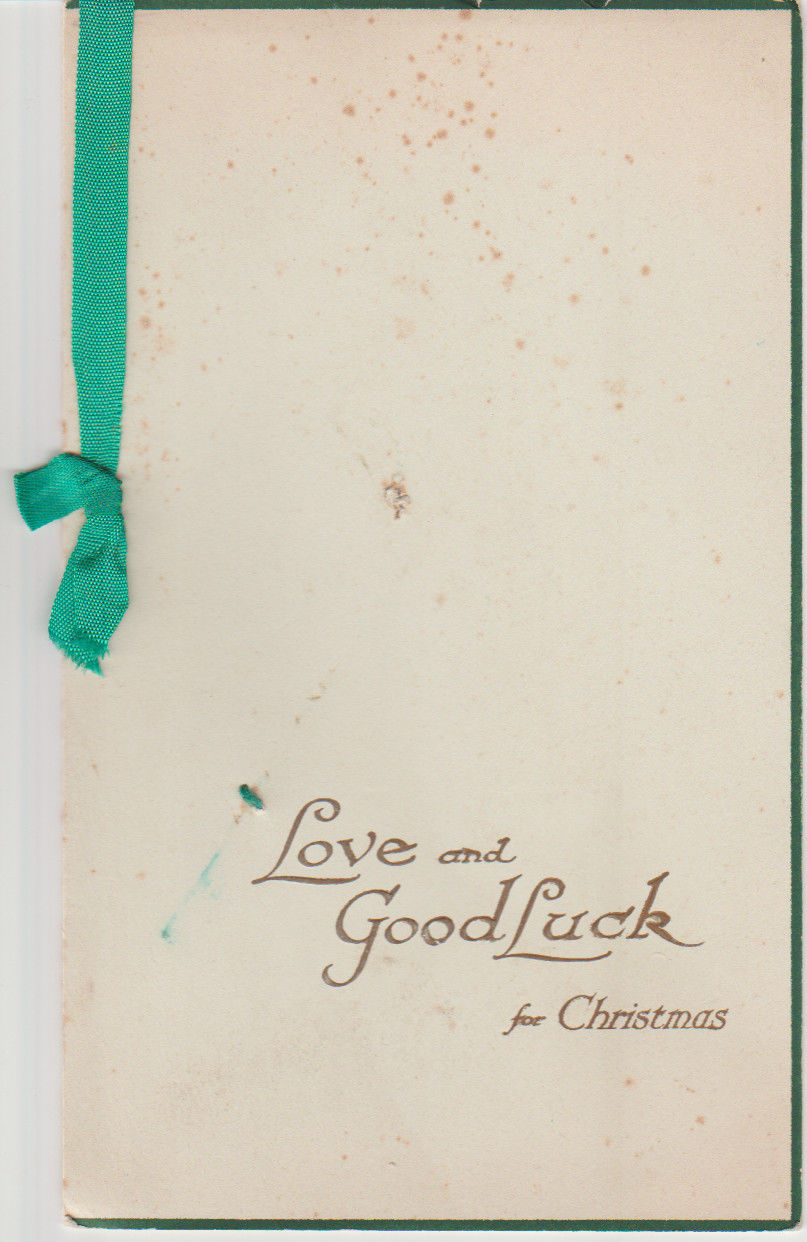 Love and
Good Luck
for Christmas